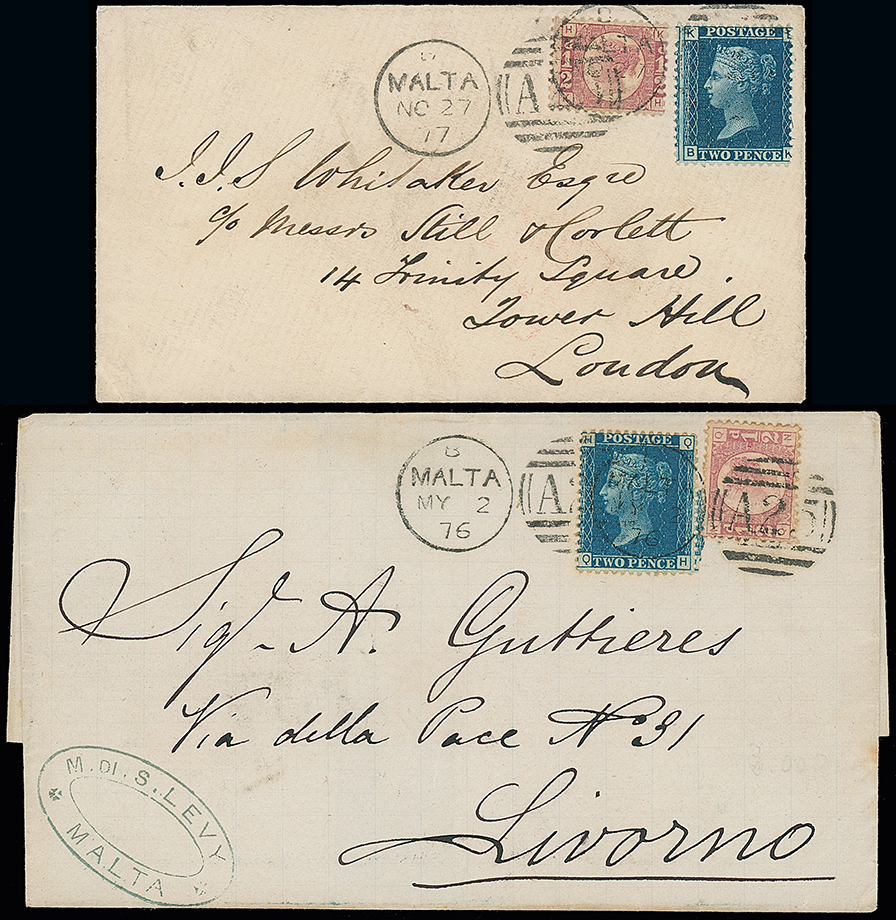 MALTA
NO 27
77
A
MALTA
H K
K H
1/2
K K
POSTAGE
B K
TWO PENCE
J.J.S Whitaker Esqre
c/o Messrs Still & Corlett
14 Trinity Square.
Tower Hill
London
B
MALTA
MY 2
76
A2
H Q
POSTAGE
76
Q H
TWO PENCE
Q N
1/2
A25
Sigr. A. Guttieres
Via della Pace No 31
Livorno
M. DI. S. LEVY
MALTA